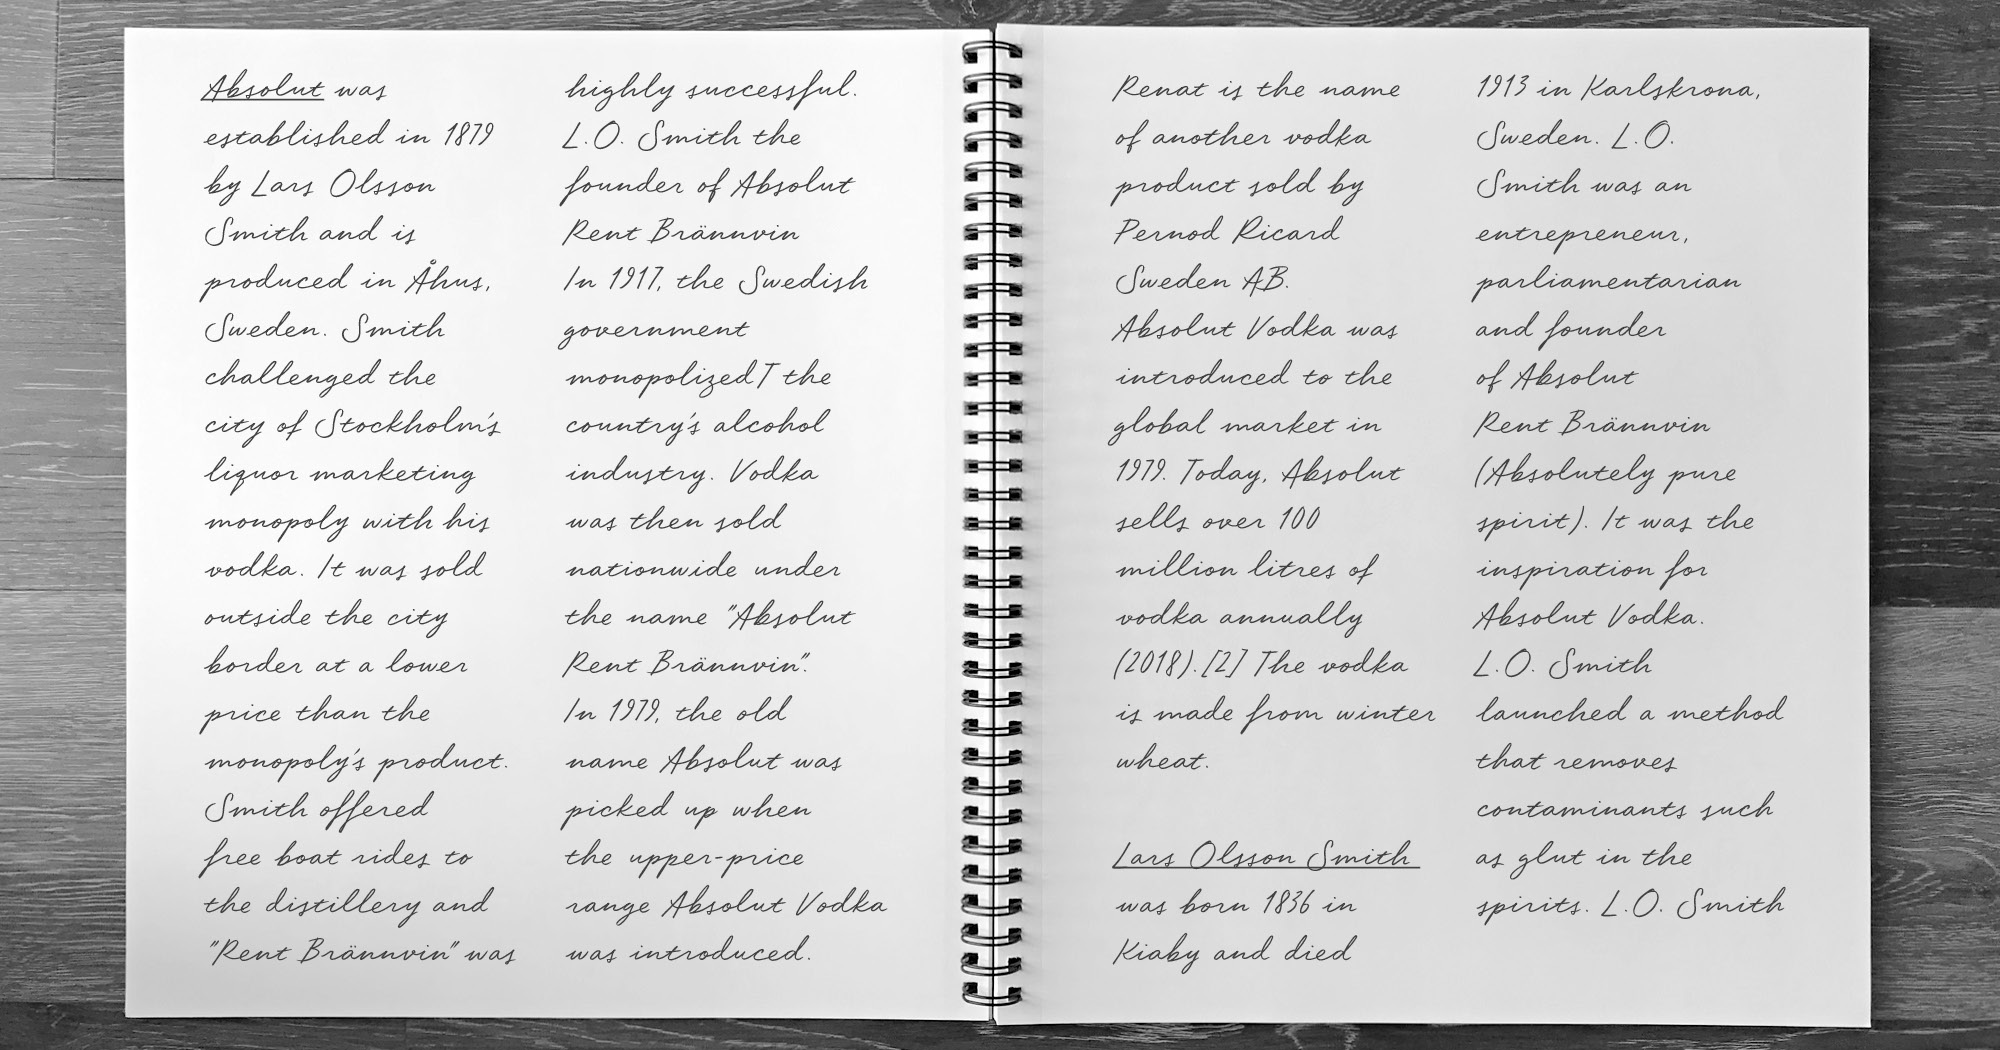 Absolut was
established in 1879
by Lars Olsson
Smith and is
produced in Åhus,
Sweden. Smith
challenged the
city of Stockholm's
liquor marketing
monopoly with his
vodka. It was sold
outside the city
border at a lower
price than the
monopoly's product.
Smith offered
free boat rides to
the distillery and
"Rent Brännvin" was
highly successful.
L.O. Smith the
founder of Absolut
Rent Brännvin
In 1917, the Swedish
government
monopolizedT the
country's alcohol
industry. Vodka
was then sold
nationwide under
the name "Absolut
Rent Brännvin".
In 1979, the old
name Absolut was
picked up when
the upper-price
range Absolut Vodka
was introduced.
Renat is the name
of another vodka
product sold by
Pernod Ricard
Sweden AB.
Absolut Vodka was
introduced to the
global market in
1979. Today, Absolut
sells over 100
million litres of
vodka annually
(2018).[2] The vodka
is made from winter
wheat.
Lars Olsson Smith
was born 1836 in
Kiaby and died
1913 in Karlskrona,
Sweden. L.O.
Smith was an
entrepreneur,
parliamentarian
and founder
of Absolut
Rent Brännvin
(Absolutely pure
spirit). It was the
inspiration for
Absolut Vodka.
L.O. Smith
launched a method
that removes
contaminants such
as glut in the
spirits. L.O. Smith